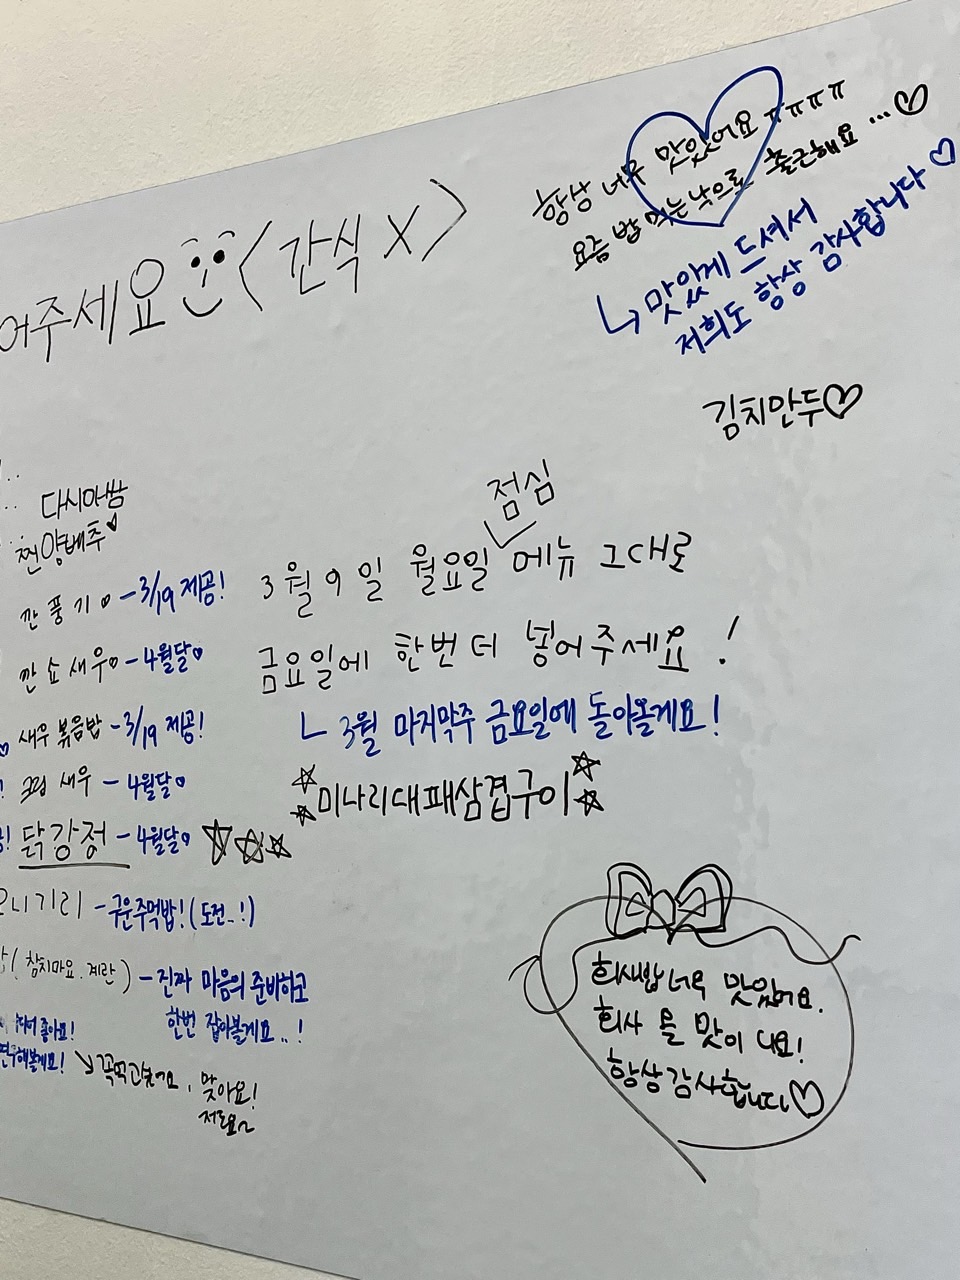 어주세요 (간식 X)
항상 너무 맛있어요 ㅠㅠㅠㅠ
요즘 밥 먹는 낙으로 출근해요 ...♡
↳ 맛있게 드셔서
저희도 항상 감사합니다♡
김치만두♡
다시마쌈
찐양배추♥
깐풍기♡ - 3/19 제공!
깐쇼새우♡ - 4월달♡
새우볶음밥 - 3/19 제공!
크림 새우 - 4월달♡
닭강정 - 4월달♡ ☆☆☆
오니기리 - 구운주먹밥! (도전..!)
(참치마요. 계란) - 진짜 마음의 준비하고
한번 잡아볼게요..!
좋아요!
연구해볼게요! ↘ 꼭먹고싶어요, 맞아요!
저도요~
점심
3월 9일 월요일 메뉴 그대로
금요일에 한번 더 넣어주세요!
ㄴ 3월 마지막주 금요일에 돌아올게요!
☆☆미나리대패삼겹구이☆☆
회사밥 너무 맛있어요.
회사 올 맛이 나요!
항상 감사합니다♡